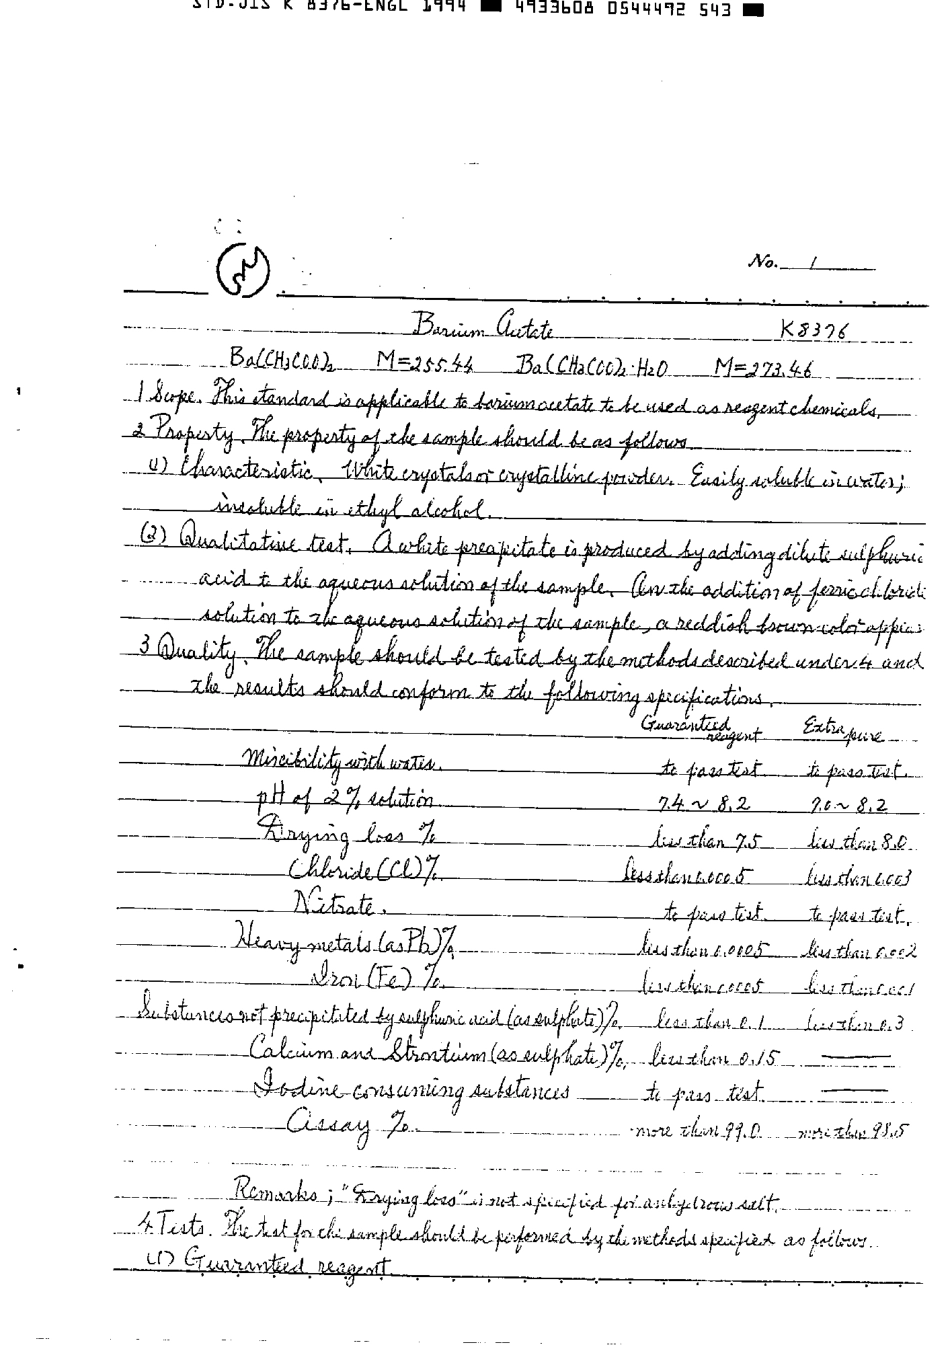 STD.JIS K 8376-ENGL 1994 4933608 0544492 543
No. 1
Barium Acetate K8376
Ba(CH3COO)2 M=255.44 Ba(CH3COO)2·H2O M=273.46
1 Scope. This standard is applicable to barium acetate to be used as reagent chemicals.
2 Property. The property of the sample should be as follows
(1) Characteristic. White crystals or crystalline powder. Easily soluble in water;
insoluble in ethyl alcohol.
(2) Qualitative test. A white precipitate is produced by adding dilute sulphuric
acid to the aqueous solution of the sample. On the addition of ferric chloride
solution to the aqueous solution of the sample, a reddish brown color
3 Quality. The sample should be tested by the methods described under 4 and
the results should conform to the following specifications.
Guaranteed reagent Extra pure
Miscibility with water. to pass test to pass test.
pH of 2% solution 7.4 ~ 8.2 7.0 ~ 8.2
Drying loss % less than 7.5 less than 8.0
Chloride (Cl) % less than 0.0005 less than 0.003
Nitrate. to pass test. to pass test.
Heavy metals (as Pb) % less than 0.0005 less than 0.002
Iron (Fe) % less than 0.0005 less than 0.001
Substances not precipitated by sulphuric acid (as sulphate) % less than 0.1 less than 0.3
Calcium and Strontium (as sulphate) % less than 0.15
Iodine consuming substances to pass test
Assay % more than 99.0 more than 98.5
Remarks; "Drying loss" is not specified for anhydrous salt.
4 Tests. The test for the sample should be performed by the methods specified as follows.
(1) Guaranteed reagent